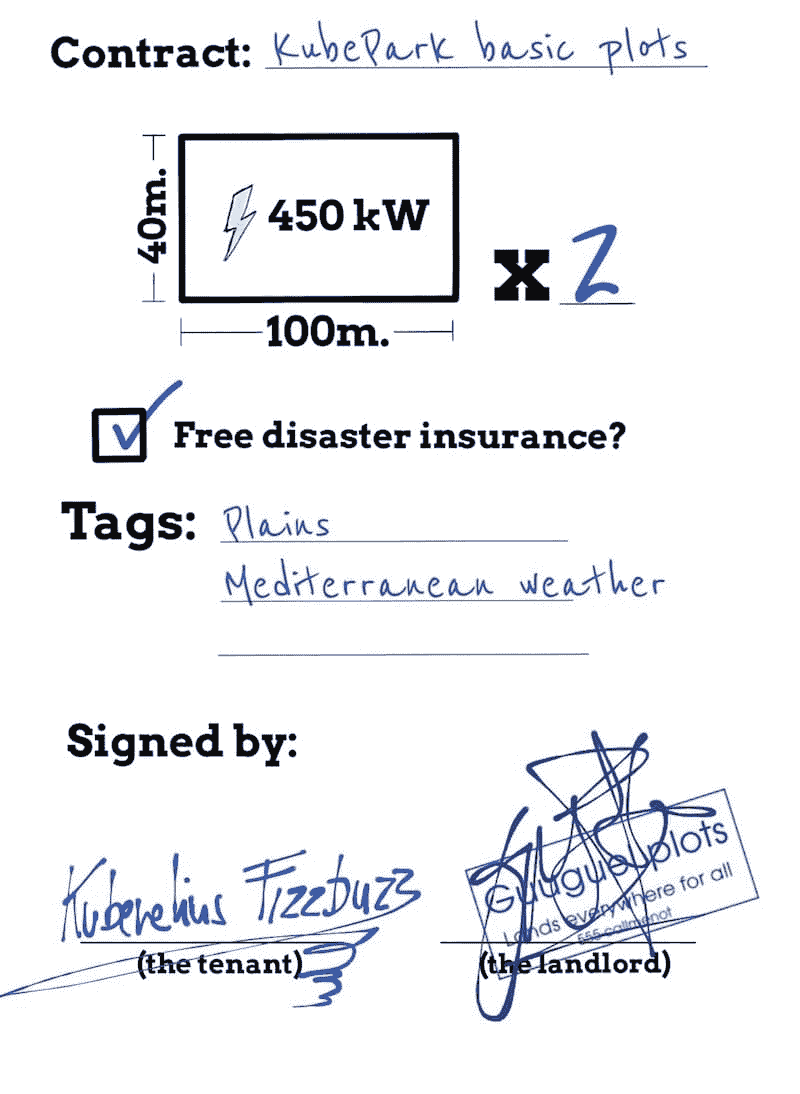 Contract: KubePark basic plots
40m.
450 kW
x 2
100m.
Free disaster insurance?
Tags: Plains
Mediterranean weather
Signed by:
Kuberelius Fizzbuzz
Guuguel plots
Lands everywhere for all
555-callmenot
(the tenant)
(the landlord)